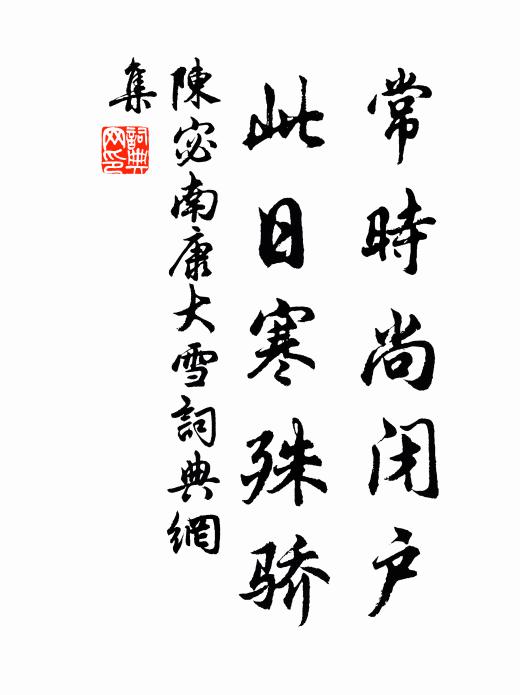 常時尚闭户
此日寒殊骄
陳宓南康大雪詞典網
集
詞典
网印